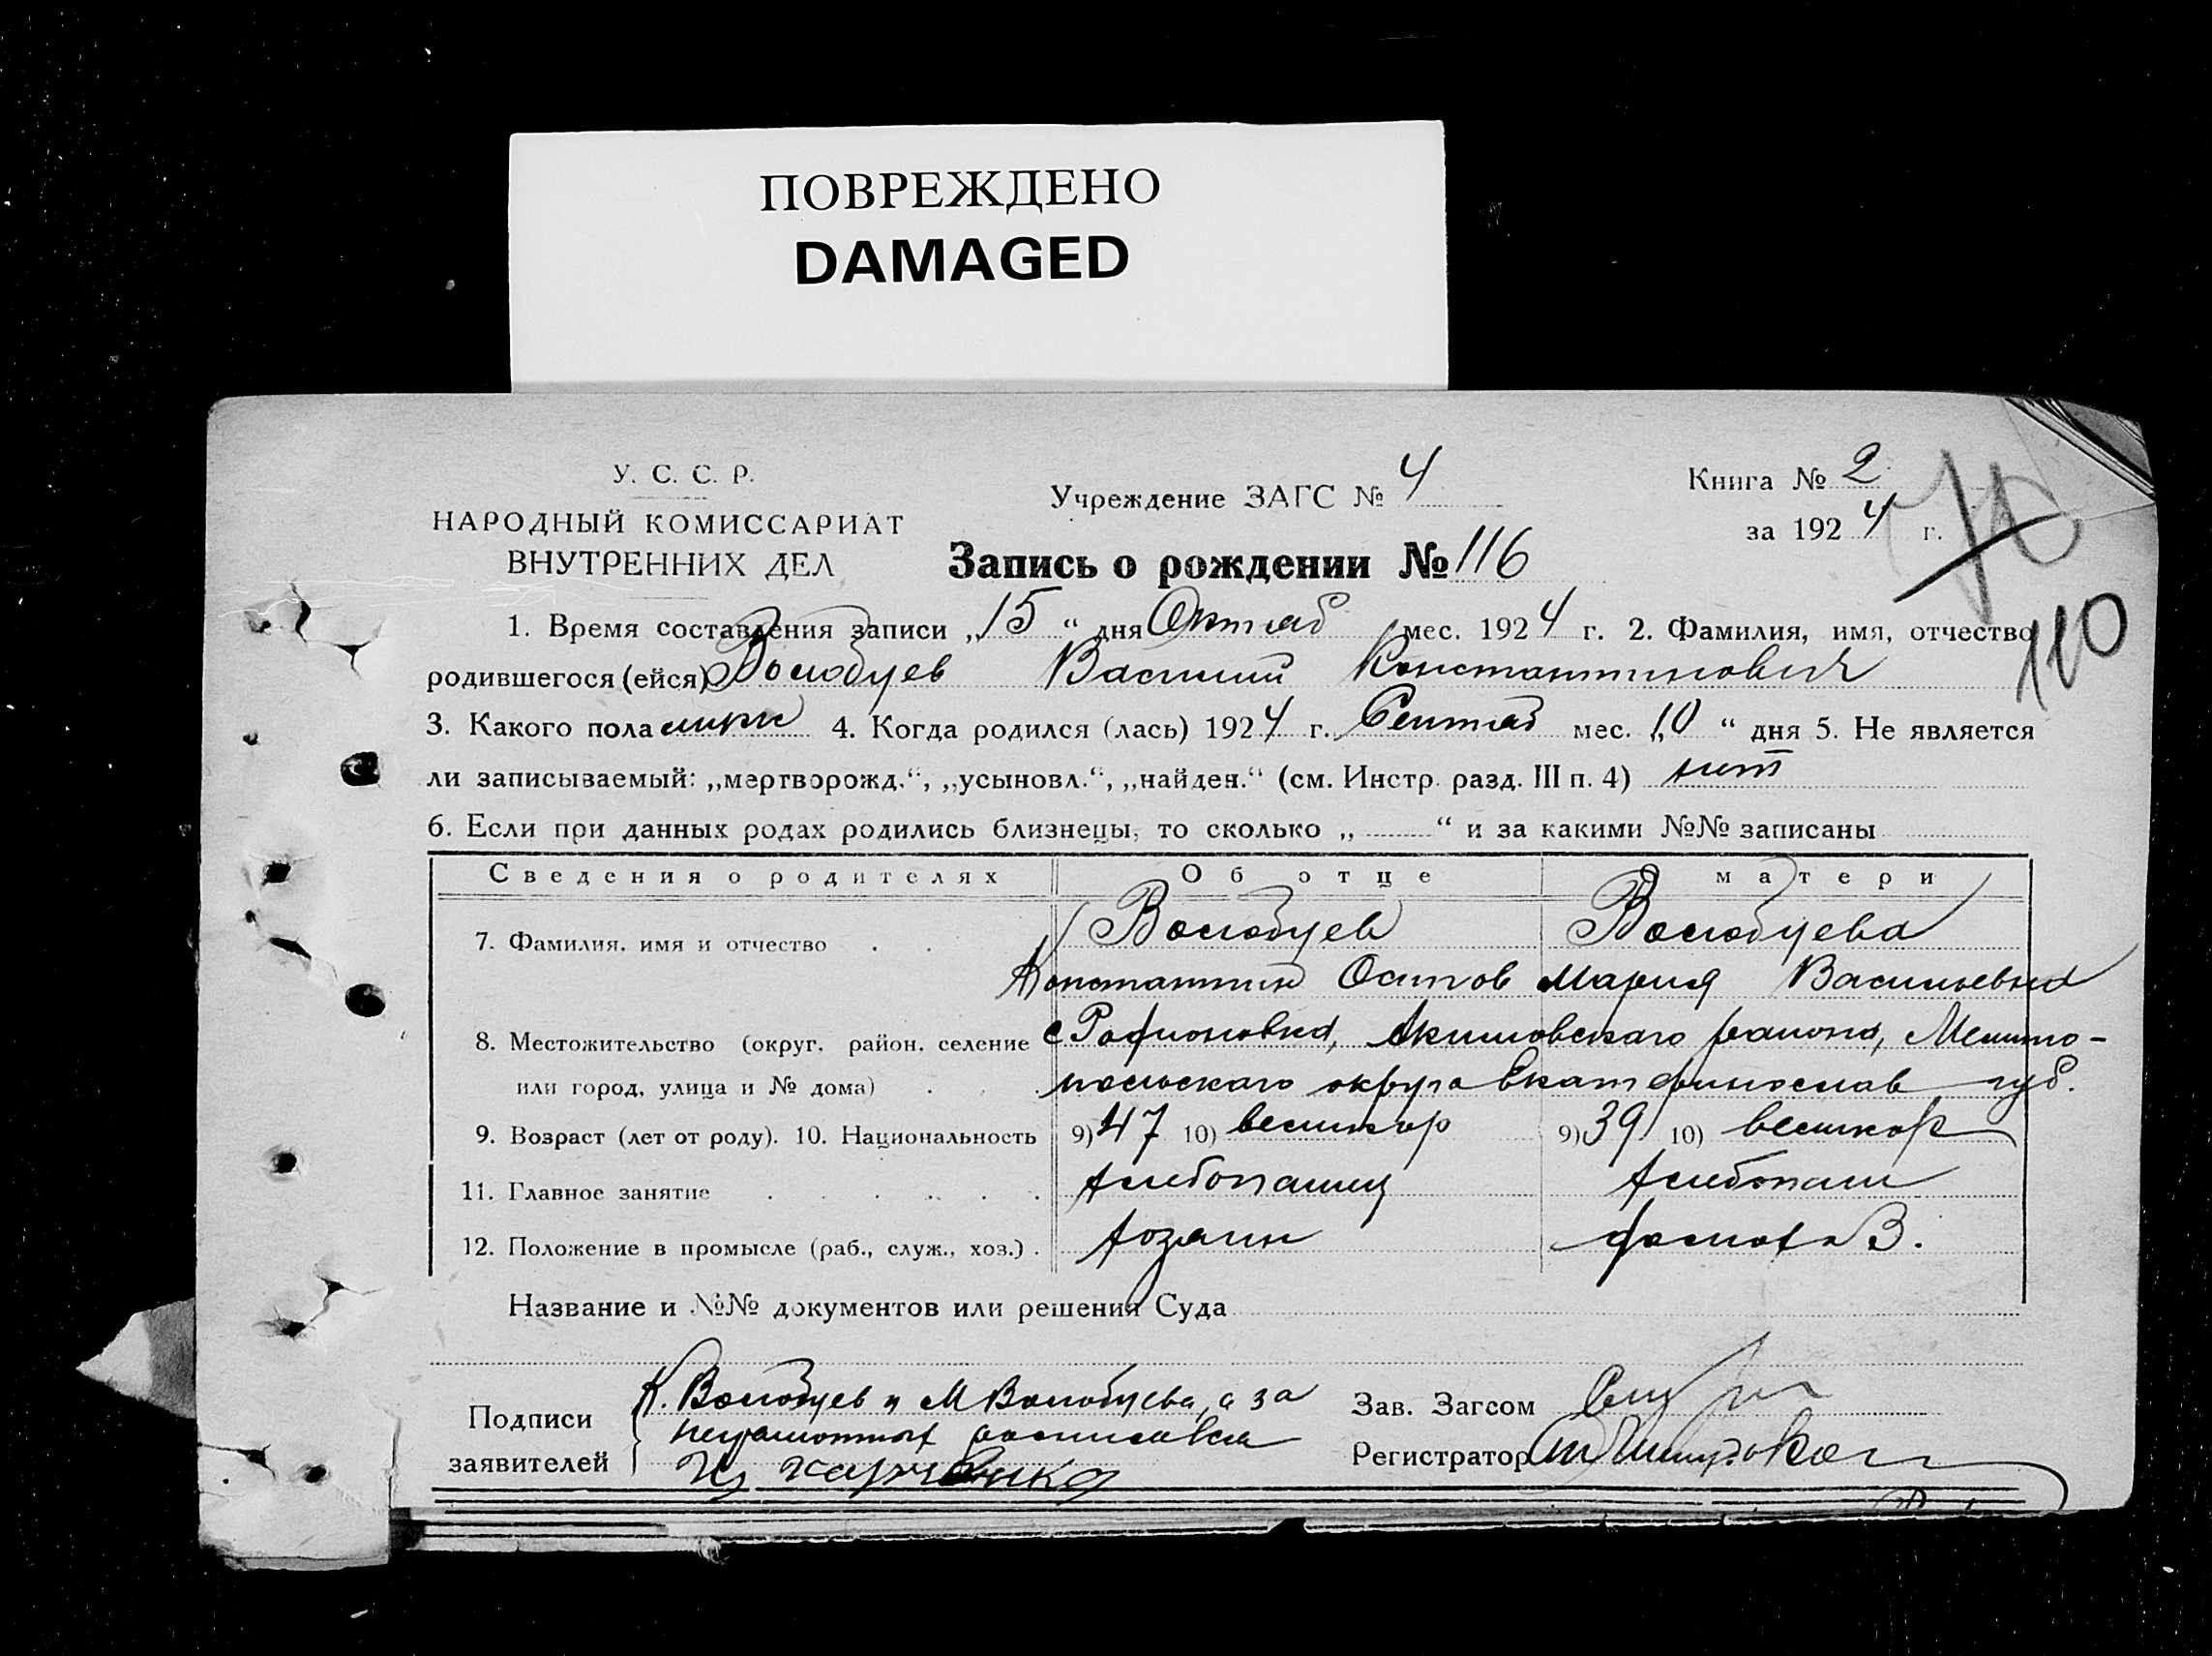 ПОВРЕЖДЕНО
DAMAGED
У. С. С. Р.
НАРОДНЫЙ КОМИССАРИАТ
ВНУТРЕННИХ ДЕЛ
Учреждение ЗАГС № 4
Книга № 2
за 1924 г.
70
Запись о рождении № 116
110
1. Время составления записи „15“ дня Октяб мес. 1924 г. 2. Фамилия, имя, отчество
родившегося (ейся) Волобуев Василий Константинович
3. Какого пола мужс 4. Когда родился (лась) 1924 г. Сентяб мес. „10“ дня 5. Не является
ли записываемый: „мертворожд.“, „усыновл.“, „найден.“ (см. Инстр. разд. III п. 4) нет
6. Если при данных родах родились близнецы, то сколько „ “ и за какими №№ записаны
Сведения о родителях Об отце О матери
7. Фамилия, имя и отчество . . Волобуев Волобуева
Константин Осипов Мария Васильевна
8. Местожительство (округ, район, селение с Родионовка, Акимовского района, Мелито-
или город, улица и № дома) . . . польского округа Екатеринослав губ.
9. Возраст (лет от роду). 10. Национальность 9) 47 10) великор 9) 39 10) великор
11. Главное занятие . . . . . . хлебопашец хлебопаш
12. Положение в промысле (раб., служ., хоз.) . хозяин домохоз.
Название и №№ документов или решения Суда
Подписи заявителей К. Волобуев и М Волобуева, а за
неграмотных росписался
Харченко
Зав. Загсом
Регистратор